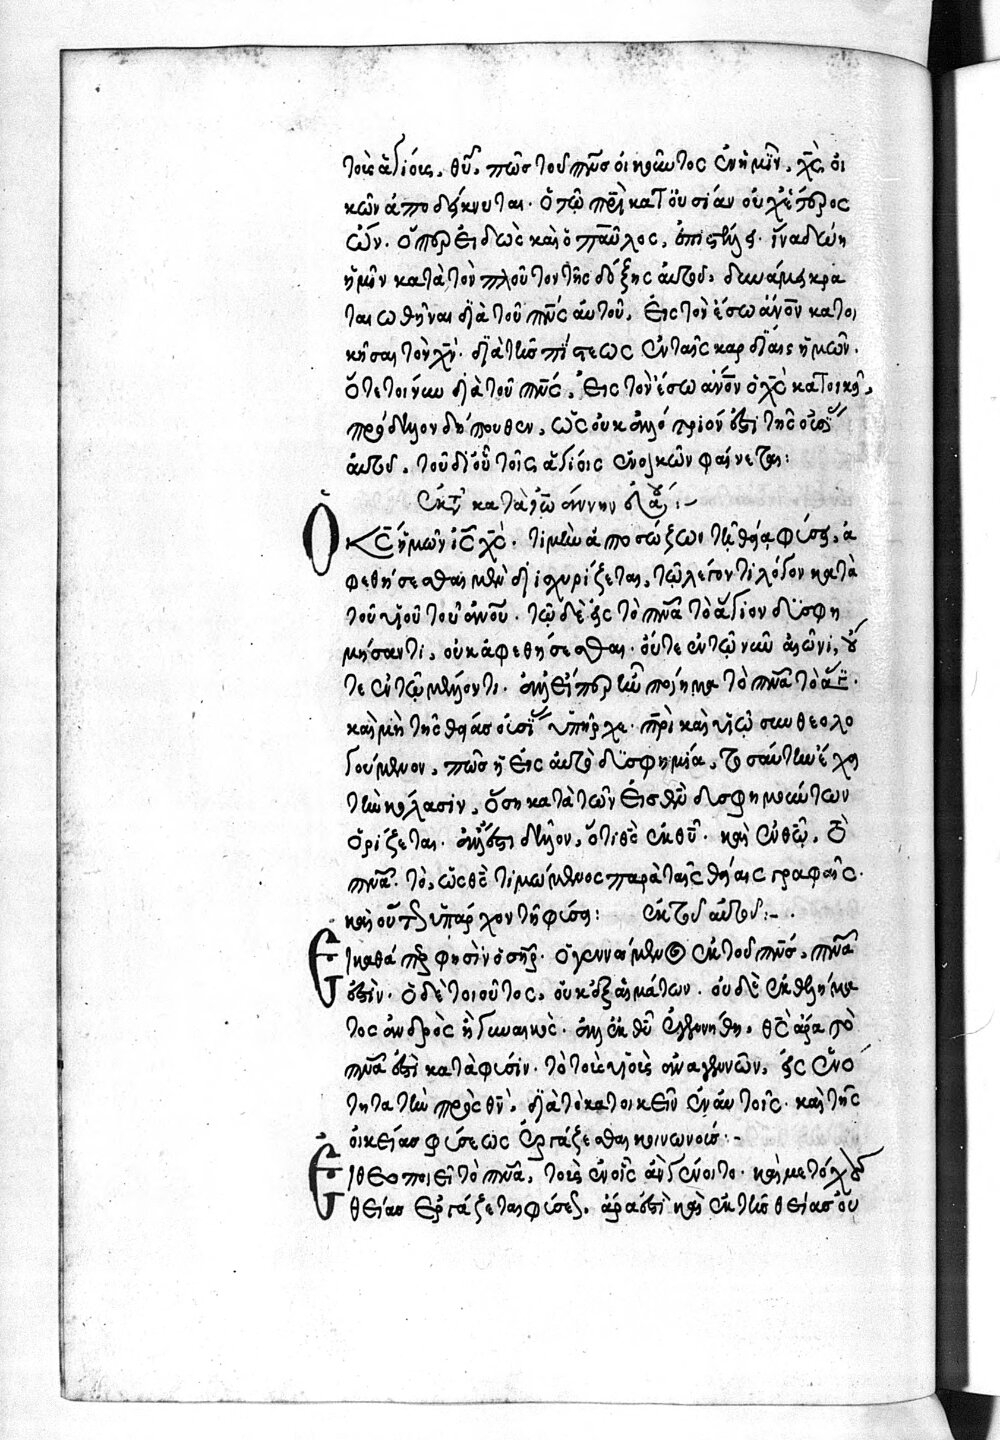 τοῖς ἁγίοις. θῦ. πῶς τοῦ πνσ οἰκοῦντος ἐν ἡμῖν, χς οἰ
κῶν ἀποδείκνυται. ὁ τῷ πρὶ κατ' οὐσίαν οὐχ ἕτερος
ὤν. ὅπερ εἰδὼς καὶ ὁ παῦλος, ἐπιστέλλει. ἵνα δώῃ
ἡμῖν κατὰ τὸν πλοῦτον τῆς δόξης αὐτοῦ, δυνάμει κρα
ταιωθῆναι διὰ τοῦ πνς αὐτοῦ, εἰς τὸν ἔσω ἄνον κατοι
κῆσαι τὸν χν. διὰ τῆς πίστεως ἐν ταῖς καρδίαις ἡμῶν.
ὅτε τοίνυν διὰ τοῦ πνς, εἰς τὸν ἔσω ἄνον ὁ χς κατοικεῖ,
πρόδηλον δήπουθεν, ὡς οὐκ ἀλλότριόν ἐστι τῆς οὐσίας
αὐτοῦ, τοῦ δι' οὗ τοῖς ἁγίοις ἐνοικῶν φαίνεται:
ἐκ τῆς κατὰ ἰω
Ὁ κς ἡμῶν ις χς. τιμὴν ἀποσώζων τῇ θείᾳ φύσει, ἀ
φεθήσεσθαι μὲν διισχυρίζεται, τῷ λέγοντι λόγον κατὰ
τοῦ υἱοῦ τοῦ ἀνου. τῷ δὲ εἰς τὸ πνα τὸ ἅγιον δυσφη
μήσαντι, οὐκ ἀφεθήσεσθαι. οὔτε ἐν τῷ νῦν αἰῶνι, οὔ
τε ἐν τῷ μέλλοντι. ἀλλ' εἴπερ ἦν ποίημα τὸ πνα τὸ ἅγ.
καὶ μὴ τῆς θείας οὐσίας ὑπῆρχε. πρὶ καὶ υἱῷ συνθεολο
γούμενον, πῶς ἡ εἰς αὐτὸ δυσφημία, τοσαύτην ἔχει
τὴν κόλασιν, ὅση κατὰ τῶν εἰς θν δυσφημούντων
ὁρίζεται. ἀλλ' ἔστι δῆλον, ὅτι θς ἐκ θῦ. καὶ ἐν θῷ, τὸ
πνα. τὸ, ὡς θς τιμώμενος παρὰ ταῖς θείαις γραφαῖς.
καὶ οὕτως ὑπάρχον τῇ φύσει: ἐκ τοῦ αὐτοῦ:-
Εἰ καθά περ φησὶν ὁ σηρ. ὁ γεννώμενος ἐκ τοῦ πνς, πνα
ἐστίν. ὁ δὲ τοιοῦτος, οὐκ ἐξ αἱμάτων. οὐδὲ ἐκ θελήμα
τος ἀνδρὸς ἢ γυναικὸς. ἀλλ' ἐκ θῦ ἐγεννήθη, θς ἄρα τὸ
πνα ἐστὶ κατὰ φύσιν. τὸ τοῖς υἱοῖς ἀναγεννῶν, εἰς ἑνό
τητα τὴν πρὸς θν, διὰ τὸ κατοικεῖν ἐν αὐτοῖς. καὶ τῆς
οἰκείας φύσεως ἐργάζεσθαι κοινωνούς:-
Εἰ θεοποιεῖ τὸ πνα, τοῖς ἐν οἷς ἂν γένοιτο. καὶ μετόχους
θείας ἐργάζεται φύσεως, ἄρα ἐστὶ καὶ ἐκ τῆς θείας οὐ